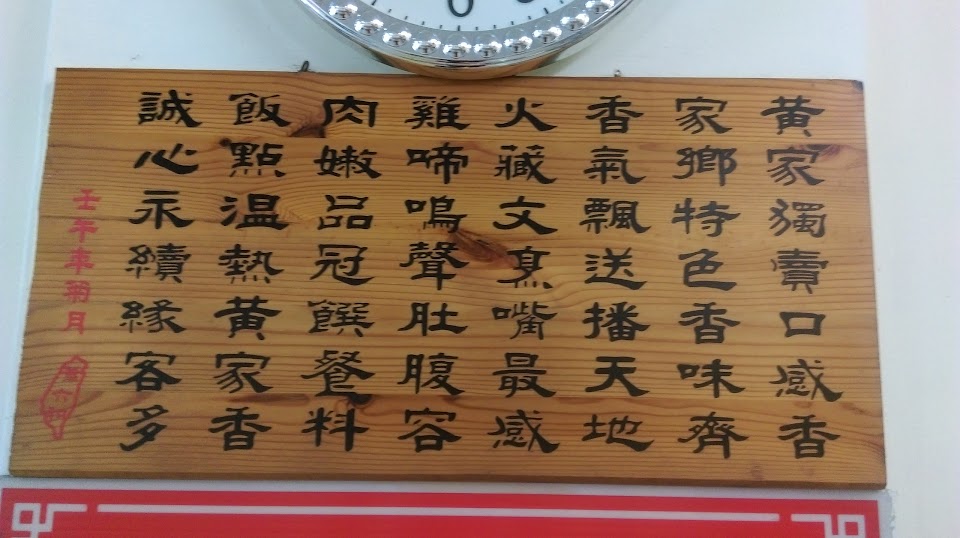 黃家獨賣口感香
家鄉特色香味齊
香氣飄送播天地
火藏文烹嘴最感
雞啼鳴聲肚腹容
肉嫩品冠饌餐料
飯點温熱黃家香
誠心永續緣客多
壬午年菊月